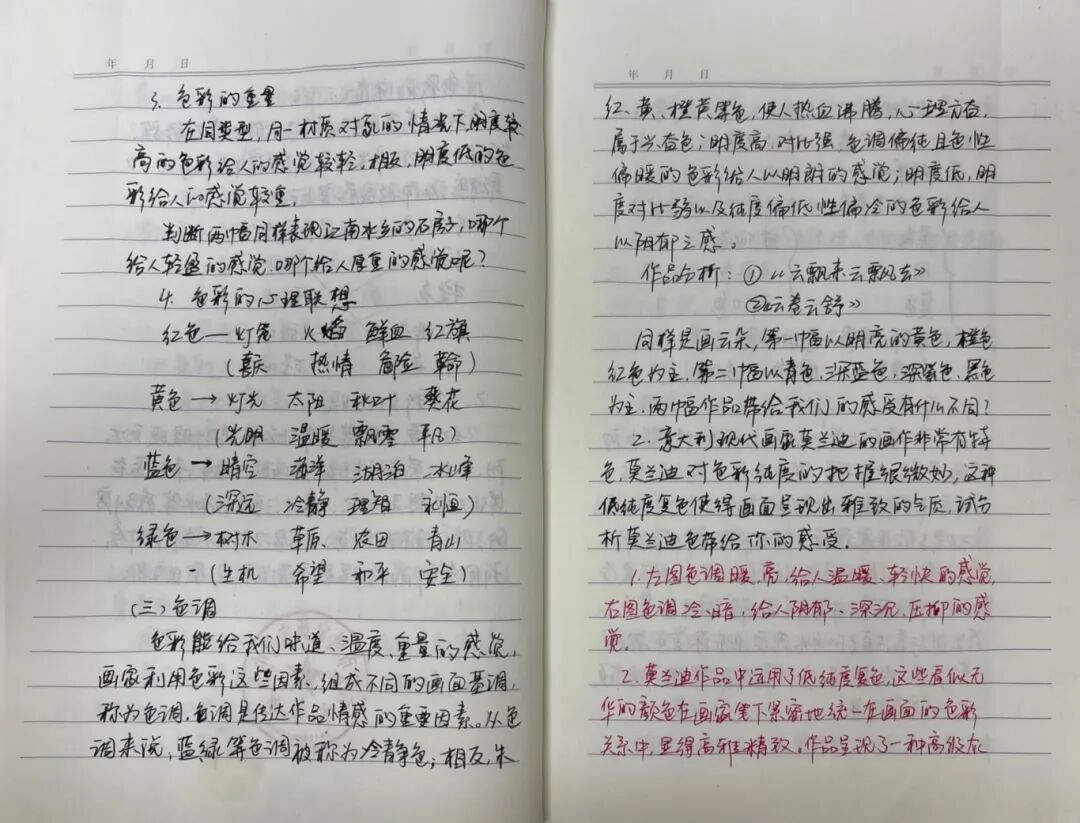 年 月 日
3. 色彩的重量
在同类型,同一材质对比的情况下,明度较
高的色彩给人的感觉较轻,相反,明度低的色
彩给人的感觉较重。
判断两幅同样表现江南水乡的石房子,哪个
给人轻盈的感觉,哪个给人厚重的感觉呢?
4. 色彩的心理联想
红色—灯笼 火焰 鲜血 红旗
(喜庆 热情 危险 革命)
黄色→灯光 太阳 秋叶 葵花
(光明 温暖 飘零 平凡)
蓝色→晴空 海洋 湖泊 冰峰
(深远 冷静 理智 永恒)
绿色→树木 草原 农田 青山
-(生机 希望 和平 安全)
(三)色调
色彩能给我们味道、温度、重量的感觉,
画家利用色彩这些因素,组成不同的画面基调,
称为色调。色调是传达作品情感的重要因素。从色
调来说,蓝绿等色调被称为冷静色;相反,朱
年 月 日
红、黄、橙黄等色,使人热血沸腾,心理亢奋,
属于兴奋色;明度高,对比强、色调偏纯且色性
偏暖的色彩给人以明朗的感觉;明度低,明
度对比弱以及纯度偏低性偏冷的色彩给人
以阴郁之感。
作品分析:①《云飘来云飘去》
②《云卷云舒》
同样是画云朵,第一幅以明亮的黄色,橙色
红色为主,第二幅以青色、深蓝色、深紫色、黑色
为主,两幅作品带给我们的感受有什么不同?
2. 意大利现代画家莫兰迪的画作非常有特
色,莫兰迪对色彩纯度的把握很微妙,这种
低纯度复色使得画面呈现出雅致的气质,试分
析莫兰迪色带给你的感受。
1. 左图色调暖、亮,给人温暖、轻快的感觉,
右图色调冷、暗,给人阴郁、深沉,压抑的感
觉。
2. 莫兰迪作品中运用了低纯度复色,这些看似无
华的颜色在画家笔下紧密地统一在画面的色彩
关系中,显得高雅精致。作品呈现了一种高级灰